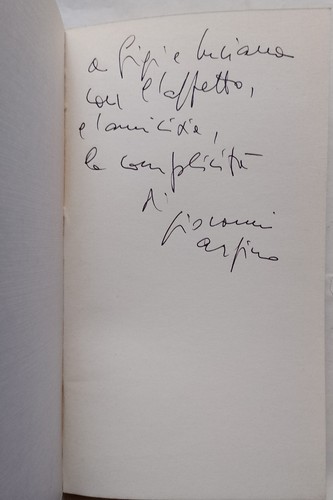 a Gigi e Luciana
con l'affetto,
e l'amicizia,
la complicità
di
Giovanni
Arpino